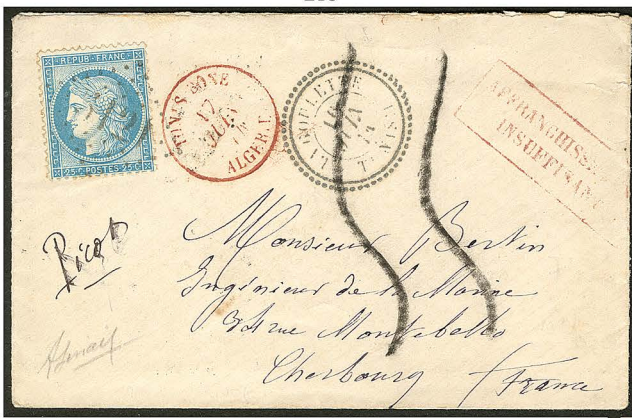 REPUB·FRANC·
25c·POSTES·25c
TUNIS BÔNE
17
JUIN
ALGER I.
LA GOULETTE
AFFRANCHISSE
INSUFFISANT
Monsieur Bertin
Ingénieur de la Marine
34 rue Montebello
Cherbourg France